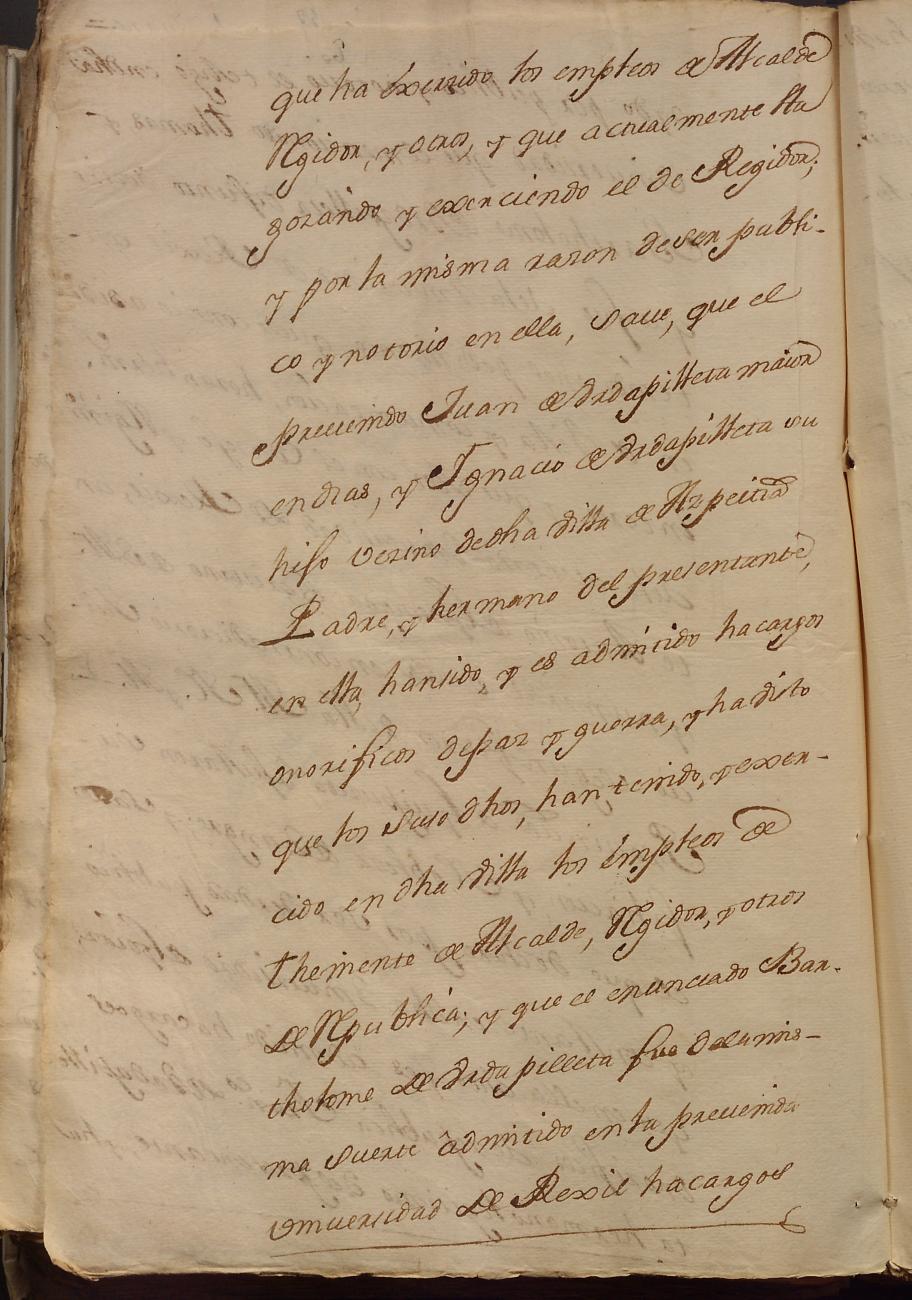 que ha éxersido los empleos de Alcalde
Regidor, y otros, y que actualmente stta
gozando y exerciendo el de Regidor;
y por la misma razon de ser publi-
co y notorio en ella, Saue, que el
preuenido Juan de Vrdapilleta maior
en dias, y Ygnacio de Vrdapilleta su
hijo vezino de dha Villa de Azpeitia
Padre, y hermano del presentante,
en ella, han sido, y es admitido hacargos
onorificos de paz y guerra, y ha visto
que los suso dhos, han tenido, y exer-
cido en dha Villa los émpleos de
Theniente de Alcalde, Regidor, y otros
de Republica; y que el enunciado Bar-
tholome de Vrdapilleta fue de la mis-
ma suerte ádmitido en la preuenida
Vniuersidad de Rexil hacargos